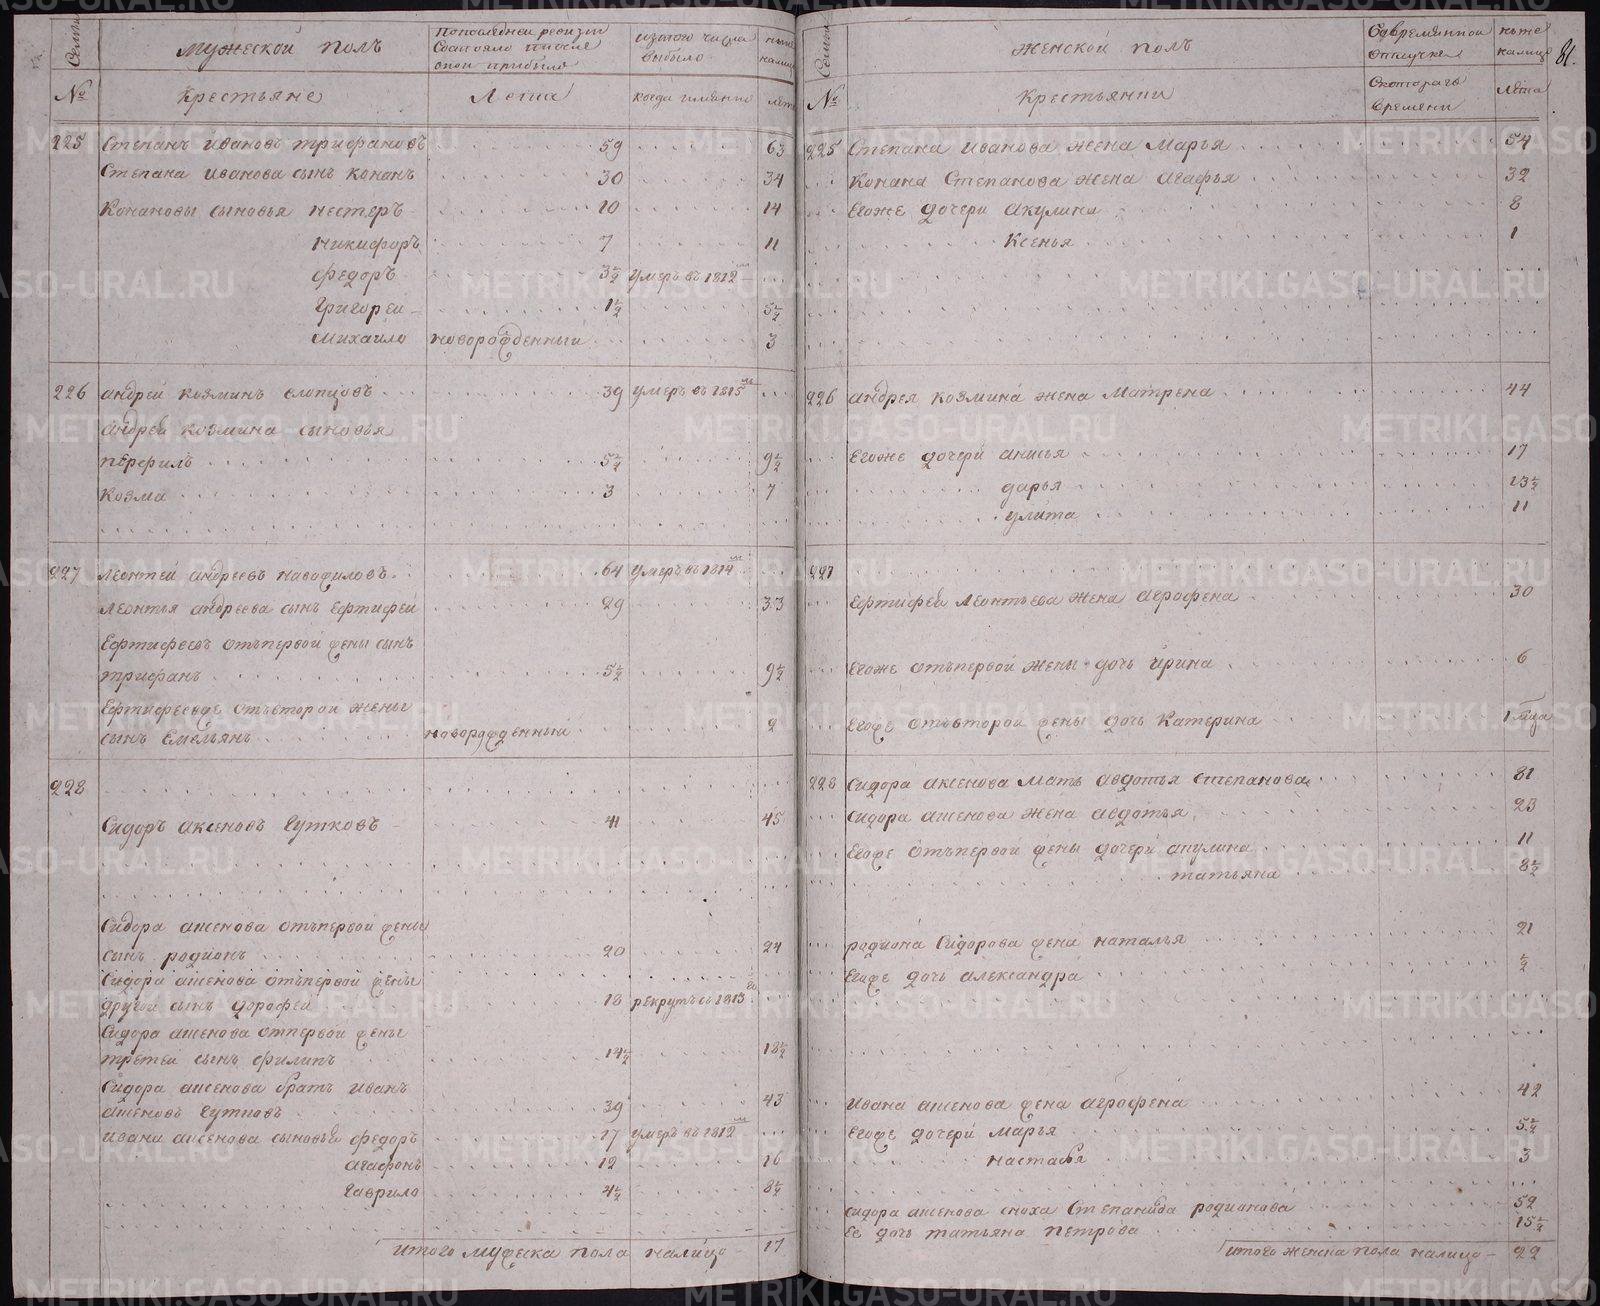 Семьи
Мужеской полъ
По последней ревизии
состояло и после
оной прибыло
изтого числа
выбыло
ныне
налицо
№
Крестьяне
Лета
когда имянно
лета
225 Степанъ Ивановъ Трифановъ 59 63
Степана Иванова сынъ Конанъ 30 34
Конановы сыновья Нестеръ 10 14
Никифоръ 7 11
Федоръ 3½ умеръ въ 1812м
Григореи 1½ 5½
Михаило новорожденныи 3
226 Андреи Козминъ Слопцовъ 39 умеръ въ 1815м
Андрея Козмина сыновья
Перфилъ 5½ 9½
Козма 3 7
227 Леонтеи Андреевъ Навафиловъ 64 умеръ въ 1814м
Леонтья Андреева сынъ Ефтифеи 29 33
Ефтифеевъ отъ первои жены сынъ
Трифанъ 5½ 9½
Ефтифеевже отъ второи жены
сынъ Емельянъ новорожденныи 2
228
Сидоръ Аксеновъ Гутковъ 41 45
Сидора Аксенова отъ первои жены
сынъ Родионъ 20 24
Сидора Аксенова отъ первои жены
другои сынъ Дорофеи 18 рекрутъ въ 1813го
Сидора Аксенова от первои жены
третеи сынъ Филипъ 14½ 18½
Сидора Аксенова братъ Иванъ
Аксеновъ Гутковъ 39 43
Ивана Аксенова сыновья Федоръ 17 умеръ въ 1812м
Агафонъ 12 16
Гаврило 4½ 8½
Итого мужеска пола налицо 17
Семьи
Женской полъ
Во временной
отлучке
ныне
налицо
81.
№
Крестьянки
Скотораго
времени
Лета
225 Степана Иванова жена Марья 54
Конана Степанова жена Агафья 32
Егоже дочери Акулина 8
Ксенья 1
226 Андрея Козмина жена Матрена 44
Егоже дочери Анисья 17
Дарья 13½
Улита 11
227
Ефтифея Леонтьева жена Агрофена 30
Егоже отъ первои жены дочь Ирина 6
Егоже отъ второи жены дочь Катерина 1 мца
228 Сидора Аксенова мать Авдотья Степанова 81
Сидора Аксенова жена Авдотья 23
Егоже отъ первои жены дочери Акулина 11
Татьяна 8½
Родиона Сидорова жена Наталья 21
Егоже дочь Александра ½
Ивана Аксенова жена Агрофена 42
Егоже дочери Марья 5½
Настасья 3
Сидора Аксенова сноха Степанида Родионова 52
Ее дочь Татьяна Петрова 15½
Итого женска пола налицо 22
METRIKI.GASO-URAL.RU